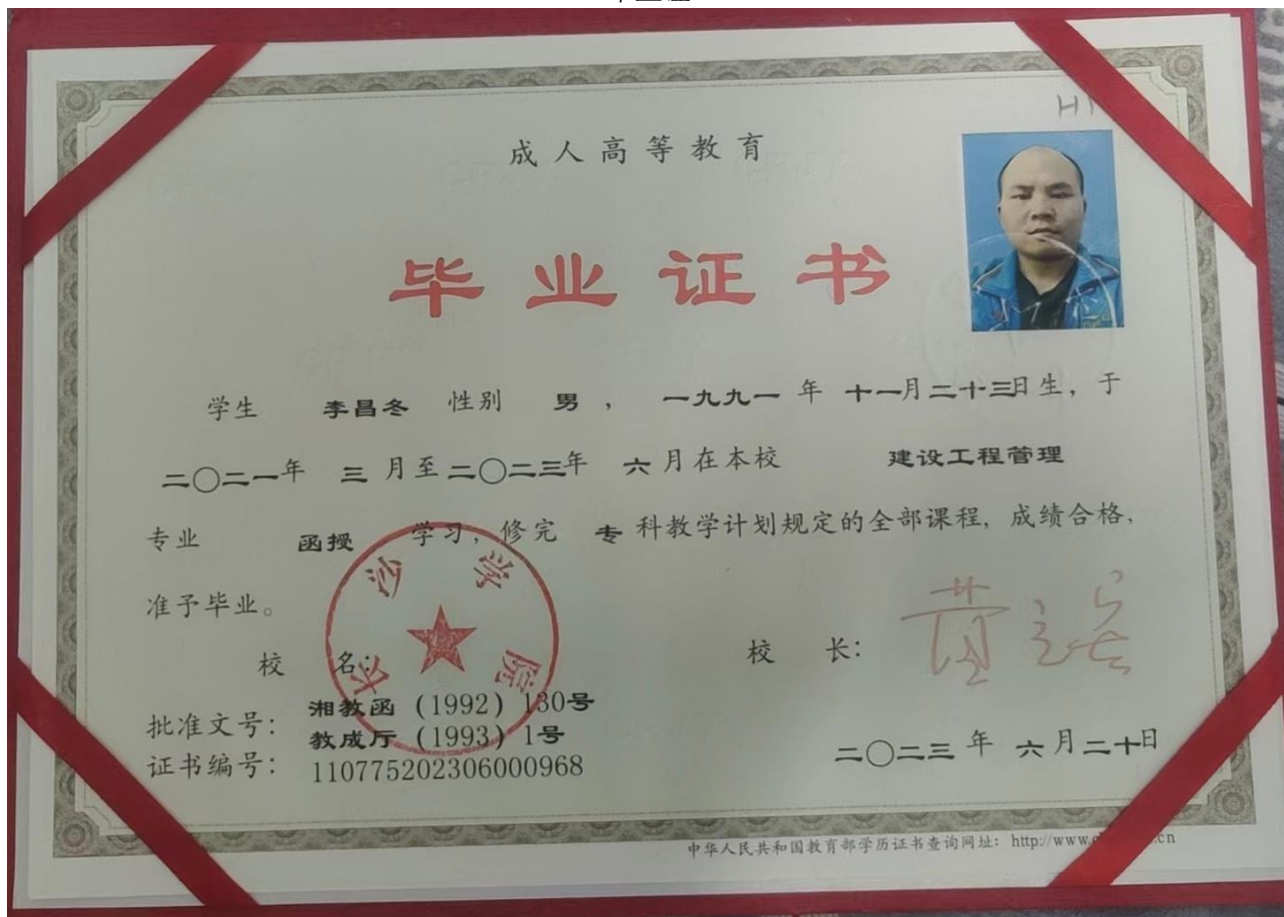 H1
成人高等教育
毕业证书
学生 李昌冬 性别 男 , 一九九一 年 十一月二十三日生, 于
二〇二一年 三 月至二〇二三年 六 月在本校 建设工程管理
专业 函授 学习, 修完 专 科教学计划规定的全部课程, 成绩合格,
准予毕业。
长沙学院
校 名: 校 长:
批准文号: 湘教函 (1992) 130号
教成厅 (1993) 1号
二〇二三 年 六 月二十日
证书编号: 110775202306000968
中华人民共和国教育部学历证书查询网址: http://www.